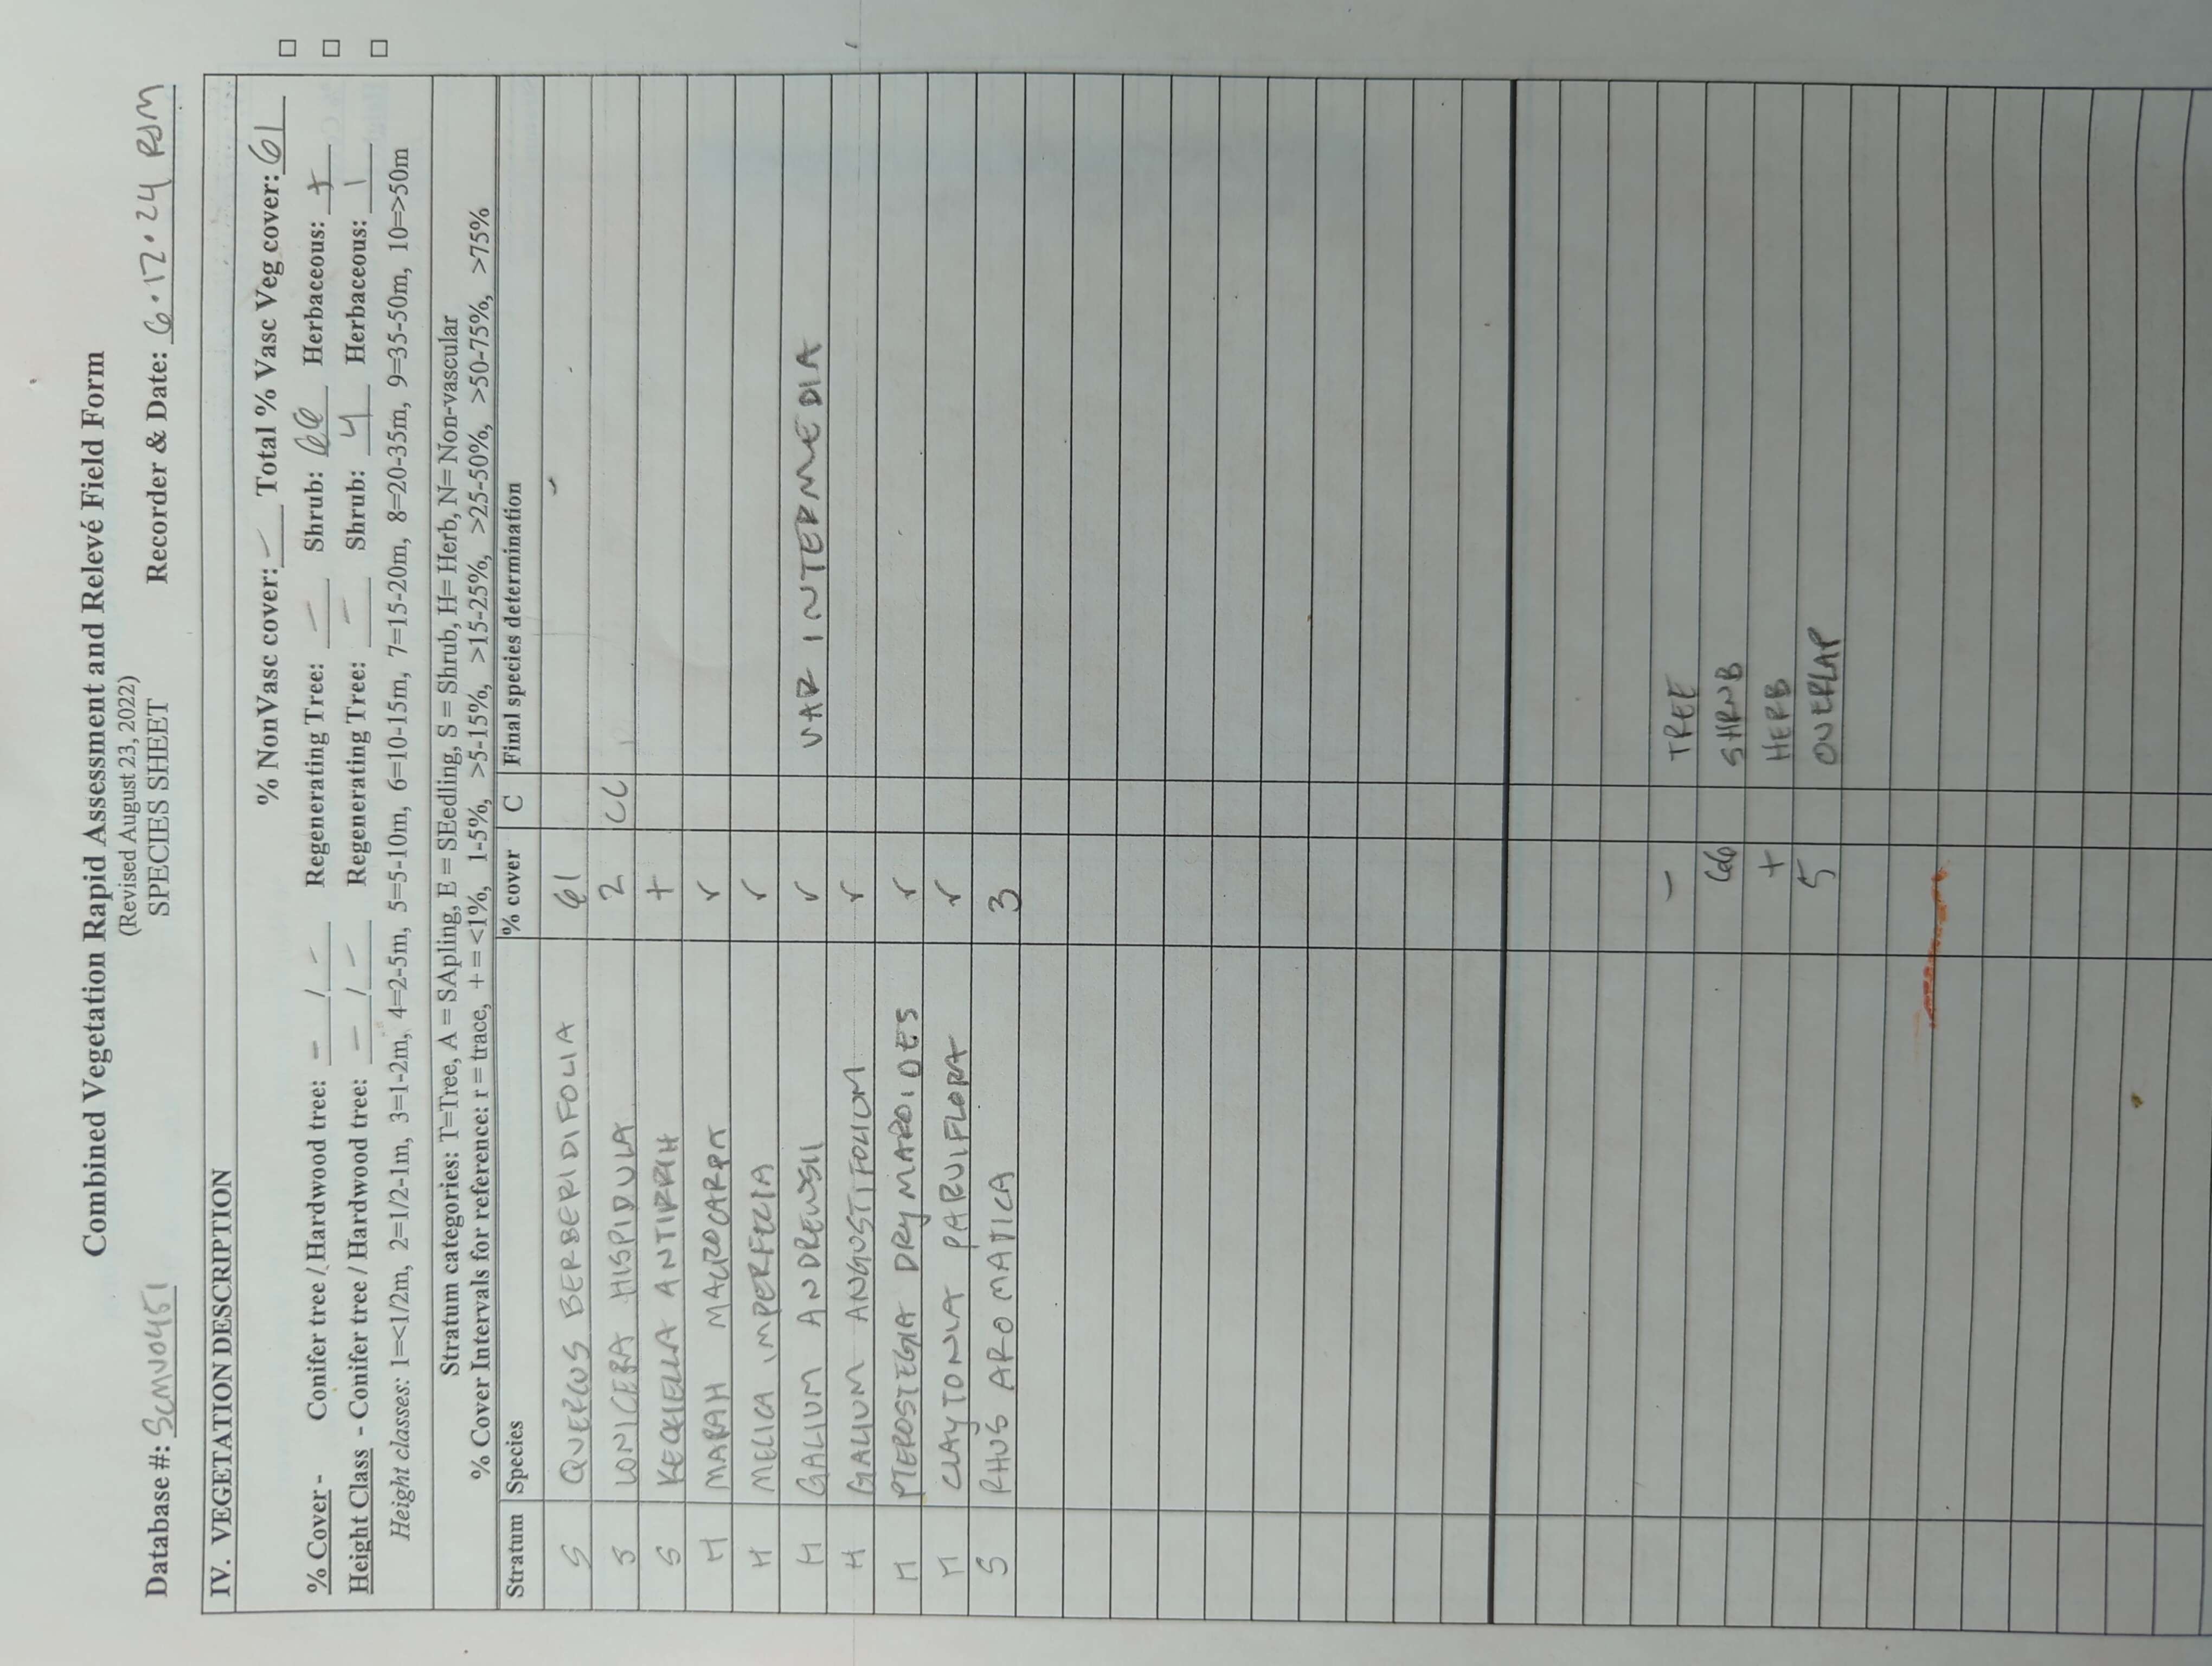 Combined Vegetation Rapid Assessment and Relevé Field Form
(Revised August 23, 2022)
SPECIES SHEET
Database #: SCMV0451 Recorder & Date: 6.17.24 RJM
IV. VEGETATION DESCRIPTION
% NonVasc cover: - Total % Vasc Veg cover: 61
% Cover - Conifer tree / Hardwood tree: - / - Regenerating Tree: - Shrub: 66 Herbaceous: +
Height Class - Conifer tree / Hardwood tree: - / - Regenerating Tree: - Shrub: 4 Herbaceous: 1
Height classes: 1=<1/2m, 2=1/2-1m, 3=1-2m, 4=2-5m, 5=5-10m, 6=10-15m, 7=15-20m, 8=20-35m, 9=35-50m, 10=>50m
Stratum categories: T=Tree, A = SApling, E = SEedling, S = Shrub, H= Herb, N= Non-vascular
% Cover Intervals for reference: r = trace, + = <1%, 1-5%, >5-15%, >15-25%, >25-50%, >50-75%, >75%
Stratum Species % cover C Final species determination
S QUERCUS BERBERIDIFOLIA 61
S LONICERA HISPIDULA 2 CC
S KECKIELLA ANTIRRH +
H MARAH MACROCARPA r
H MELICA IMPERFECTA r
H GALIUM ANDREWSII r VAR INTERMEDIA
H GALIUM ANGUSTIFOLIUM r
H PTEROSTEGIA DRYMARIOIDES r
H CLAYTONIA PARVIFLORA r
S RHUS AROMATICA 3
- TREE
66 SHRUB
+ HERB
5 OVERLAP